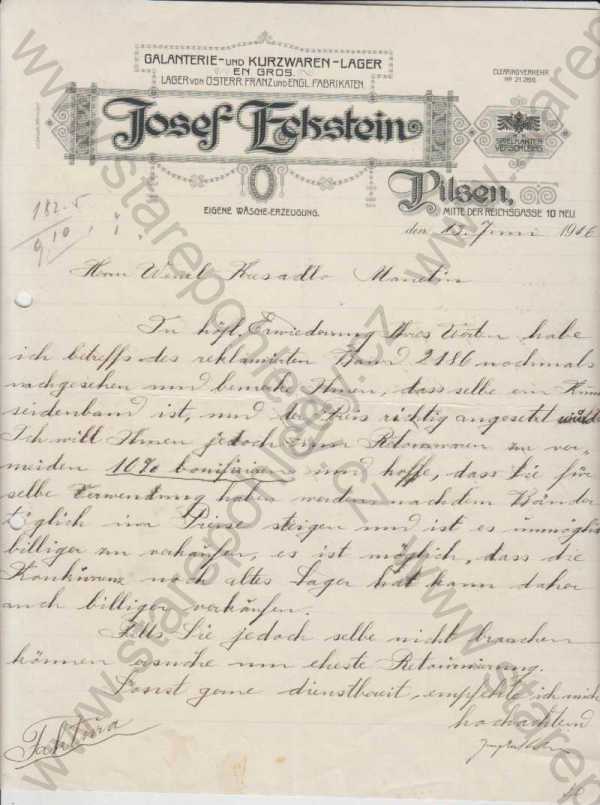 GALANTERIE-UND KURZWAREN-LAGER
EN GROS.
LAGER VON ÖSTERR. FRANZ. UND ENGL. FABRIKATEN
CLEARINGVERKEHR
Josef Eckstein
SPIELKARTEN
VERSCHLEISS
Pilsen,
EIGENE WÄSCHE-ERZEUGUNG.
MITTE DER REICHSGASSE 10 NEU
182.5
910
den 13. Juni 1916
Herrn Wenzl Manetin
In höfl. Erwiederung Ihres Werten habe
ich betreffs des reklamirten Band 2186 nochmals
nachgesehen und bemerke Ihnen, dass selbe ein Kunst
seidenband ist, und der Preis richtig angesetzt wurde
Ich will Ihnen jedoch um Retouren zu ver-
meiden 10% bonifiziren und hoffe, dass Sie für
selbe Verwendung haben werden nachdem Bänder
täglich im Preise steigen und ist es unmöglich
billiger zu verkaufen, es ist möglich, dass die
Konkurenz noch altes Lager hat kann daher
auch billiger verkaufen.
Falls Sie jedoch selbe nicht brauchen
können ersuche um eheste Retournierung.
Sonst gerne dienstbereit, empfehle ich mich
hochachtend
Faktura
www.starepohledy.cz